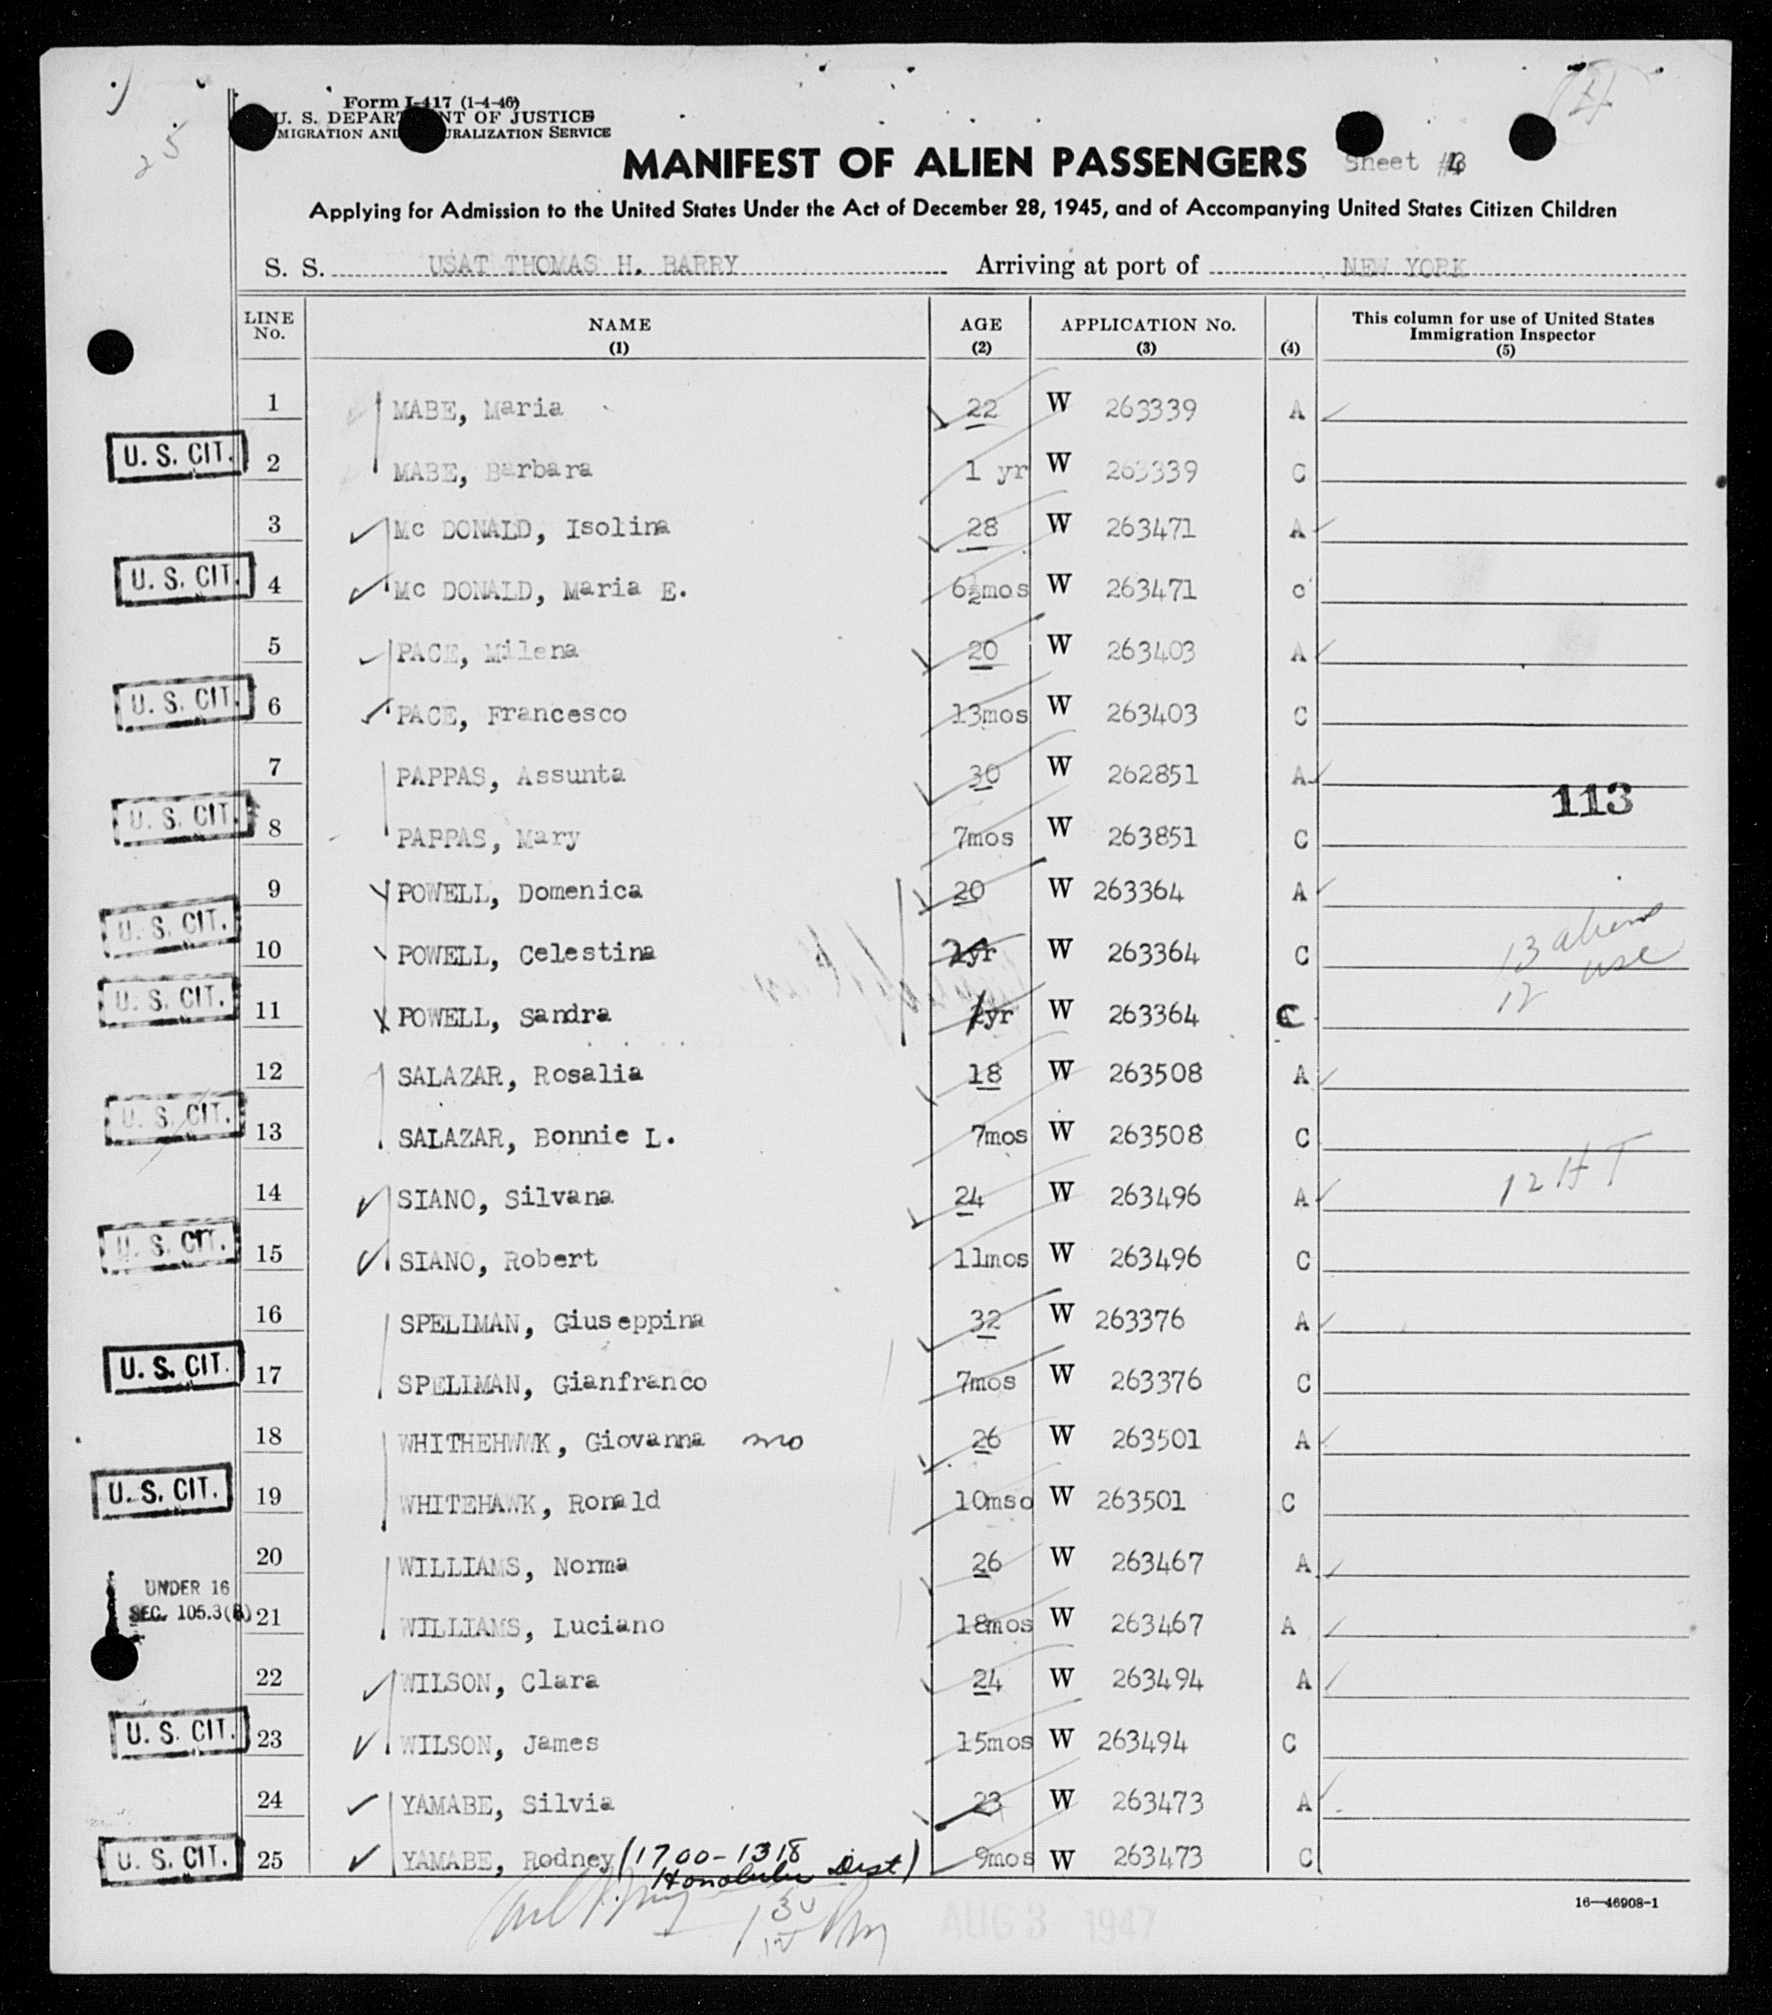 Form I-417 (1-4-46)
U. S. DEPARTMENT OF JUSTICE
IMMIGRATION AND NATURALIZATION SERVICE
25
MANIFEST OF ALIEN PASSENGERS Sheet #
Applying for Admission to the United States Under the Act of December 28, 1945, and of Accompanying United States Citizen Children
S. S. USAT THOMAS H. BARRY Arriving at port of NEW YORK
LINE No. NAME (1) AGE (2) APPLICATION No. (3) (4) This column for use of United States Immigration Inspector (5)
1 MABE, Maria 22 W 263339 A
U. S. CIT. 2 MABE, Barbara 1 yr W 263339 C
3 Mc DONALD, Isolina 28 W 263471 A
U. S. CIT. 4 Mc DONALD, Maria E. 6½mos W 263471 C
5 PACE, Milena 20 W 263403 A
U. S. CIT. 6 PACE, Francesco 13mos W 263403 C
7 PAPPAS, Assunta 30 W 262851 A
113
U. S. CIT. 8 PAPPAS, Mary 7mos W 263851 C
9 POWELL, Domenica 20 W 263364 A
U. S. CIT. 10 POWELL, Celestina 2yr W 263364 C
13 aliens
12 USC
U. S. CIT. 11 POWELL, Sandra 1yr W 263364 C
12 SALAZAR, Rosalia 18 W 263508 A
U. S. CIT. 13 SALAZAR, Bonnie L. 7mos W 263508 C
14 SIANO, Silvana 24 W 263496 A 12 HT
U. S. CIT. 15 SIANO, Robert 11mos W 263496 C
16 SPELIMAN, Giuseppina 32 W 263376 A
U. S. CIT. 17 SPELIMAN, Gianfranco 7mos W 263376 C
18 WHITHEHWWK, Giovanna 26 W 263501 A
U. S. CIT. 19 WHITEHAWK, Ronald 10mso W 263501 C
20 WILLIAMS, Norma 26 W 263467 A
UNDER 16
SEC. 105.3(B) 21 WILLIAMS, Luciano 18mos W 263467 A
22 WILSON, Clara 24 W 263494 A
U. S. CIT. 23 WILSON, James 15mos W 263494 C
24 YAMABE, Silvia 23 W 263473 A
U. S. CIT. 25 YAMABE, Rodney (1700-1318 Honolulu Dist) 9mos W 263473 C
16—46908-1
AUG 3 1947